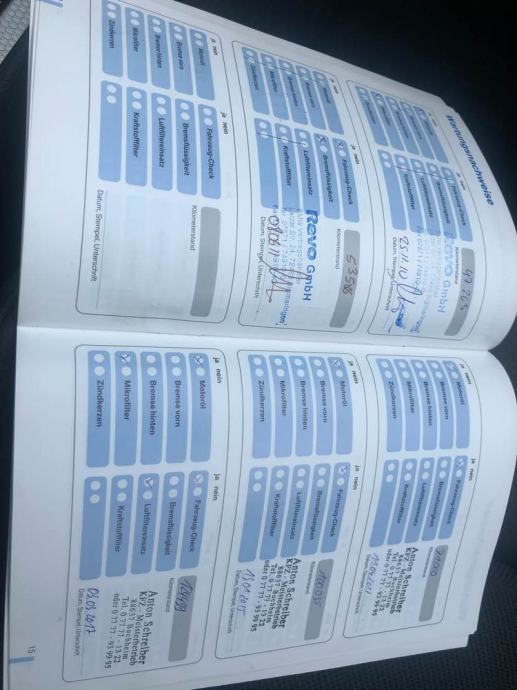 Wartungsnachweise
ja nein
Bremse hinten
Mikrofilter
Zündkerzen
ja nein
Fahrzeug-Check
Bremsflüssigkeit
Luftfiltereinsatz
Kraftstofffilter
Kilometerstand
47265
Revo GmbH
25.11.10
ja nein
Bremse vorn
Bremse hinten
Mikrofilter
Zündkerzen
ja nein
Fahrzeug-Check
Bremsflüssigkeit
Luftfiltereinsatz
Kraftstofffilter
Kilometerstand
Revo GmbH
Datum, Stempel, Unterschrift
ja nein
Motoröl
Bremse vorn
Bremse hinten
Mikrofilter
Zündkerzen
ja nein
Fahrzeug-Check
Bremsflüssigkeit
Luftfiltereinsatz
Kraftstofffilter
Kilometerstand
Datum, Stempel, Unterschrift
ja nein
Motoröl
Bremse vorn
Bremse hinten
Mikrofilter
Zündkerzen
ja nein
Fahrzeug-Check
Bremsflüssigkeit
Luftfiltereinsatz
Kraftstofffilter
Kilometerstand
Anton Schreiber
KFZ - Meisterbetrieb
88637 Buchheim
Tel. 0 77 77 - 13 22
oder 0 77 77 - 93 99 95
Datum, Stempel, Unterschrift
ja nein
Motoröl
Bremse vorn
Bremse hinten
Mikrofilter
Zündkerzen
ja nein
Fahrzeug-Check
Bremsflüssigkeit
Luftfiltereinsatz
Kraftstofffilter
Kilometerstand
Anton Schreiber
KFZ - Meisterbetrieb
88637 Buchheim
Tel. 0 77 77 - 13 22
oder 0 77 77 - 93 99 95
Datum, Stempel, Unterschrift
ja nein
Motoröl
Bremse vorn
Bremse hinten
Mikrofilter
Zündkerzen
ja nein
Fahrzeug-Check
Bremsflüssigkeit
Luftfiltereinsatz
Kraftstofffilter
Kilometerstand
Anton Schreiber
KFZ - Meisterbetrieb
88637 Buchheim
Tel. 0 77 77 - 13 22
oder 0 77 77 - 93 99 95
03.05.2017
Datum, Stempel, Unterschrift
15